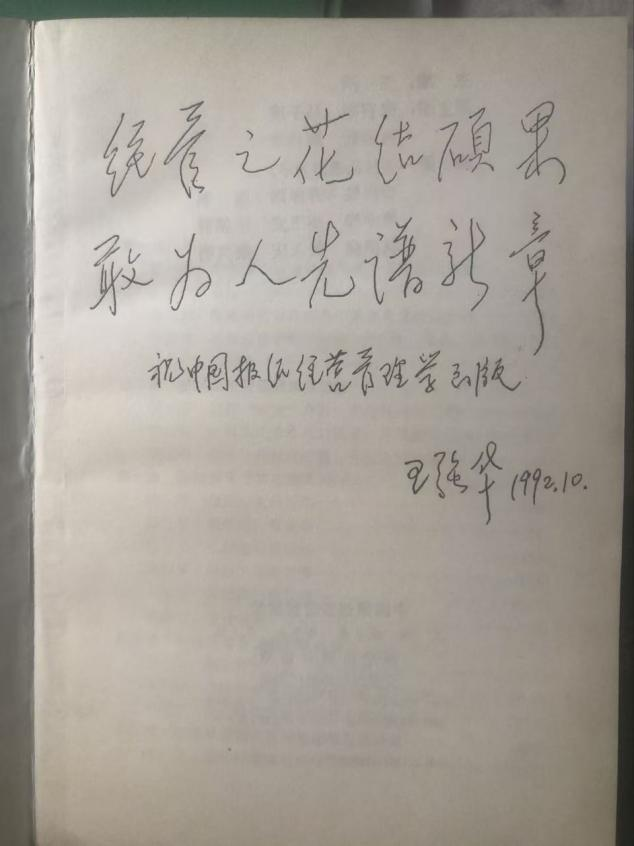 经管之花结硕果
敢为人先谱新章
祝中国报纸经营管理学出版
王强华 1992.10.